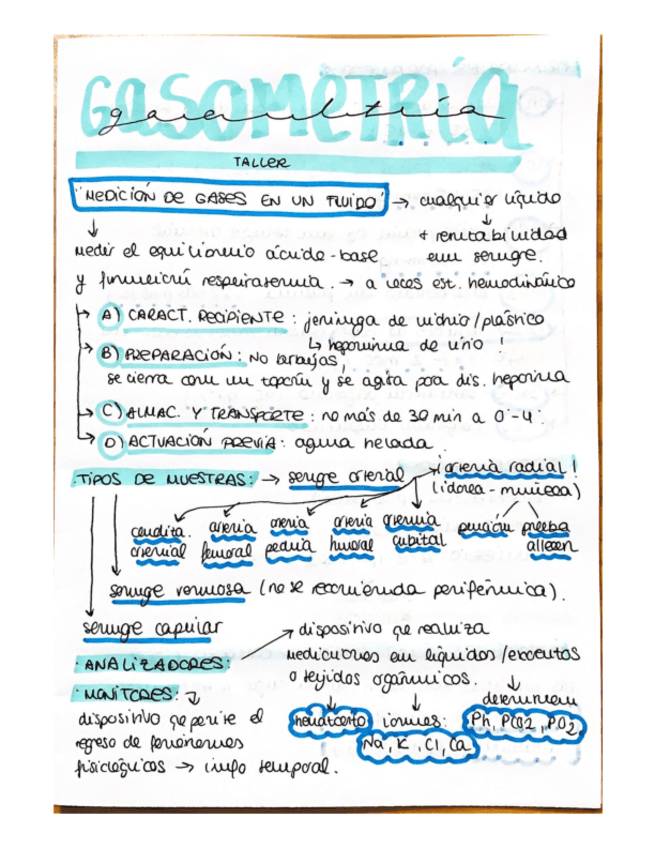 GASOMETRÍA
gasometría
TALLER
"MEDICIÓN DE GASES EN UN FLUIDO" → cualquier líquido
↓ ↓
medir el equilibrio ácido-base + rentabilidad
en sangre.
y función respiratoria. → a veces est. hemodinámico
A) CARACT. RECIPIENTE: jeringa de vidrio/plástico
↳ heparina de litio
B) PREPARACIÓN: No burbujas,
se cierra con un tapón y se agita para dis. heparina
C) ALMAC. Y TRANSPORTE: no más de 30 min a 0-4°.
D) ACTUACIÓN PREVIA: agua helada.
TIPOS DE MUESTRAS: → sangre arterial → ¡arteria radial!
(idónea - muñeca)
arteria arteria arteria arteria punción prueba
arterial femoral pedia humeral cubital allen
sangre venosa (no se recomienda periférica).
sangre capilar
· ANALIZADORES: → dispositivo qe realiza
mediciones en líquidos/
o tejidos orgánicos.
· MONITORES: ↓ determinan
dispositivo qe permite el hematocrito iones: Ph, PCO2, PO2,
regreso de fenómenos Na, K, Cl, Ca
fisiológicos → info temporal.